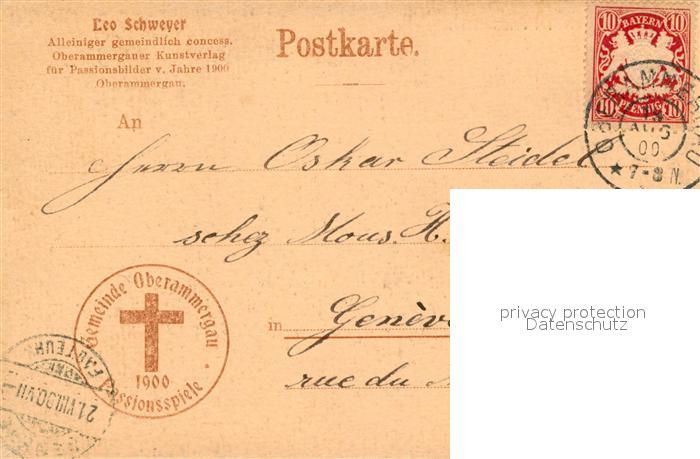 Leo Schweyer
Alleiniger gemeindlich concess.
Oberammergauer Kunstverlag
für Passionsbilder v. Jahre 1900
Oberammergau.
Postkarte.
10 BAYERN 10
10 PFENNIG 10
OBERAMMERGAU
AUG
00
7-8 N.
An
Herrn Oskar Steidel
chez Mons. H.
in Genève
rue du
Gemeinde Oberammergau
1900
Passionsspiele
21.VIII.00.VII
FACTEUR
privacy protection
Datenschutz